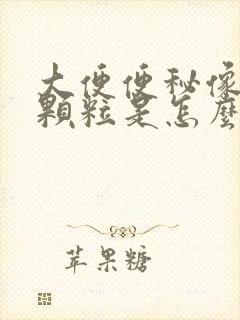 大便便秘像
顆粒是怎麼
苹果糖